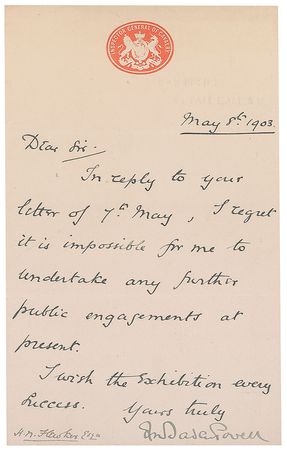 INSPECTOR GENERAL OF CAVALRY
May 8th 1903.
Dear Sir.
In reply to your
letter of 7th May, I regret
it is impossible for me to
undertake any further
public engagements at
present.
I wish the Exhibition every
success. Yours truly
H. M. Esqre
RSS Baden Powell